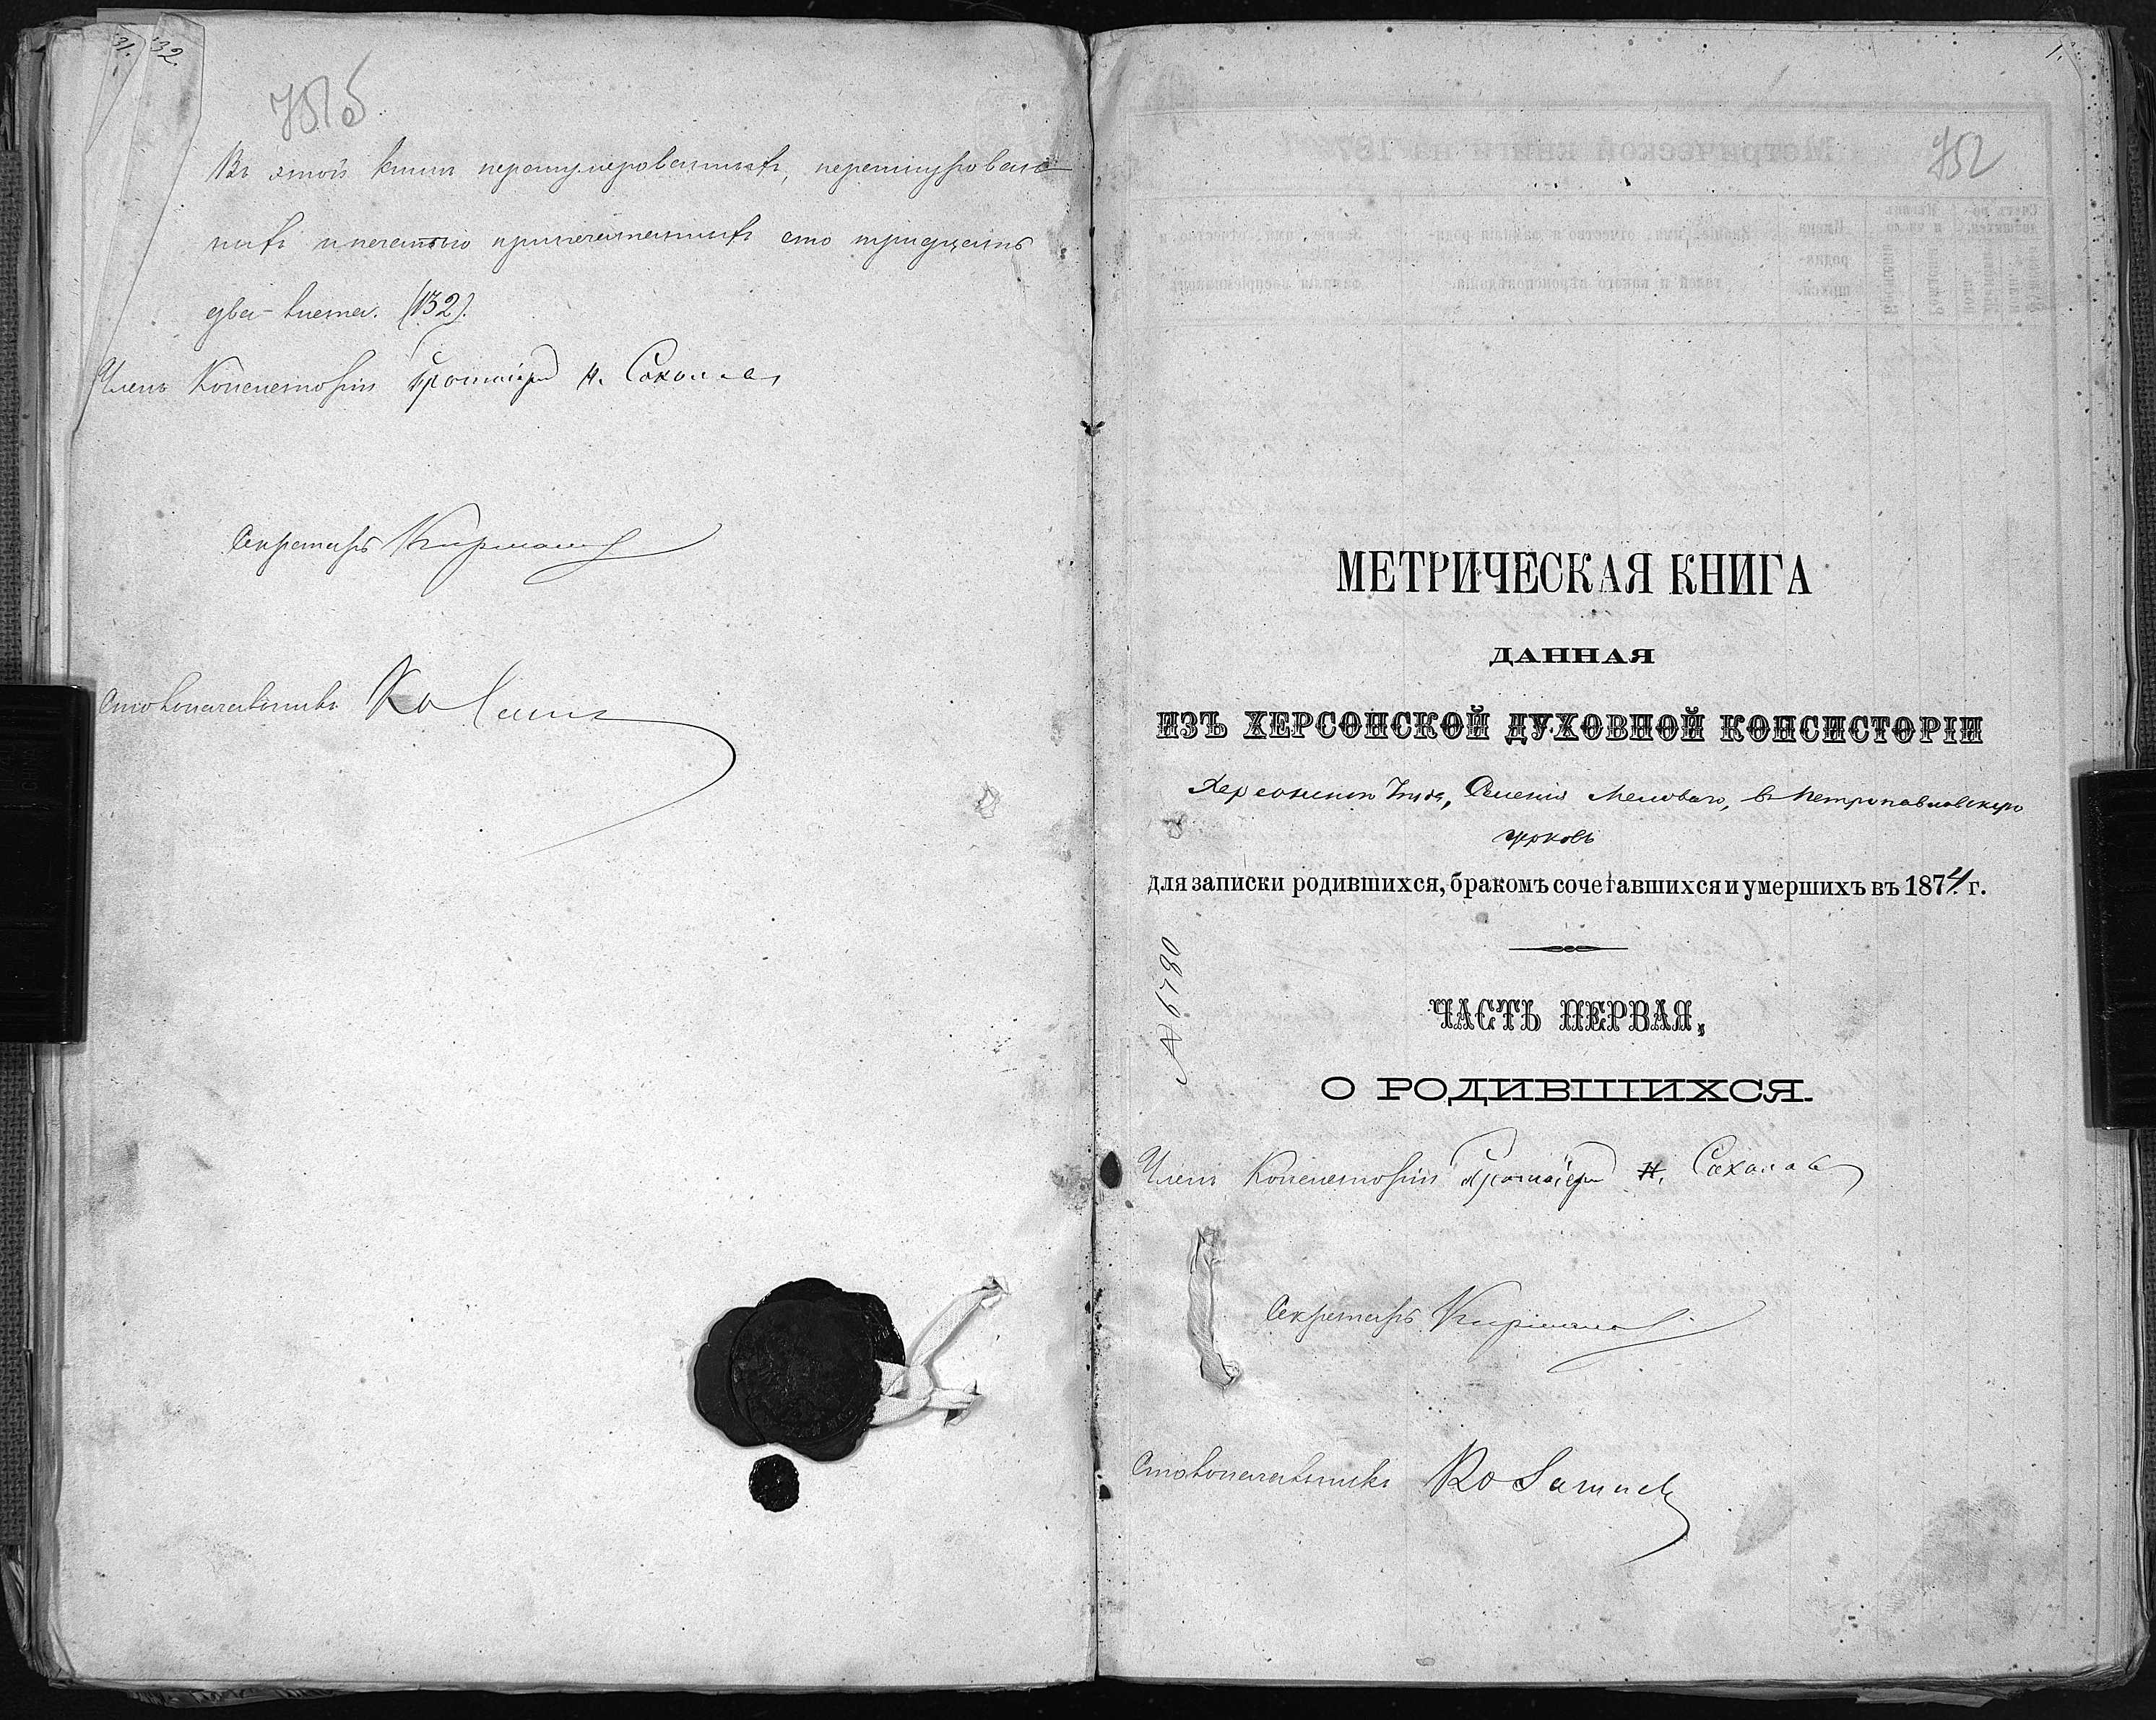 31.
132.
751б
Въ этой книгѣ перенумерованныхъ, перешнурован-
ныхъ и печатью припечатанныхъ сто тридцать
два листа. (132).
Членъ Консисторіи Протоіерей Н. Соколов
Секретарь
Столоначальникъ
1.
752
МЕТРИЧЕСКАЯ КНИГА
ДАННАЯ
ИЗЪ ХЕРСОНСКОЙ ДУХОВНОЙ КОНСИСТОРІИ
Херсонскаго Уѣзда, Селенія Меловаго, въ Петропавловскую
церковь
для записки родившихся, бракомъ сочетавшихся и умершихъ въ 1874 г.
№ 6780
ЧАСТЬ ПЕРВАЯ,
О РОДИВШИХСЯ.
Членъ Консисторіи Протоіерей Н. Соколов
Секретарь
Столоначальникъ